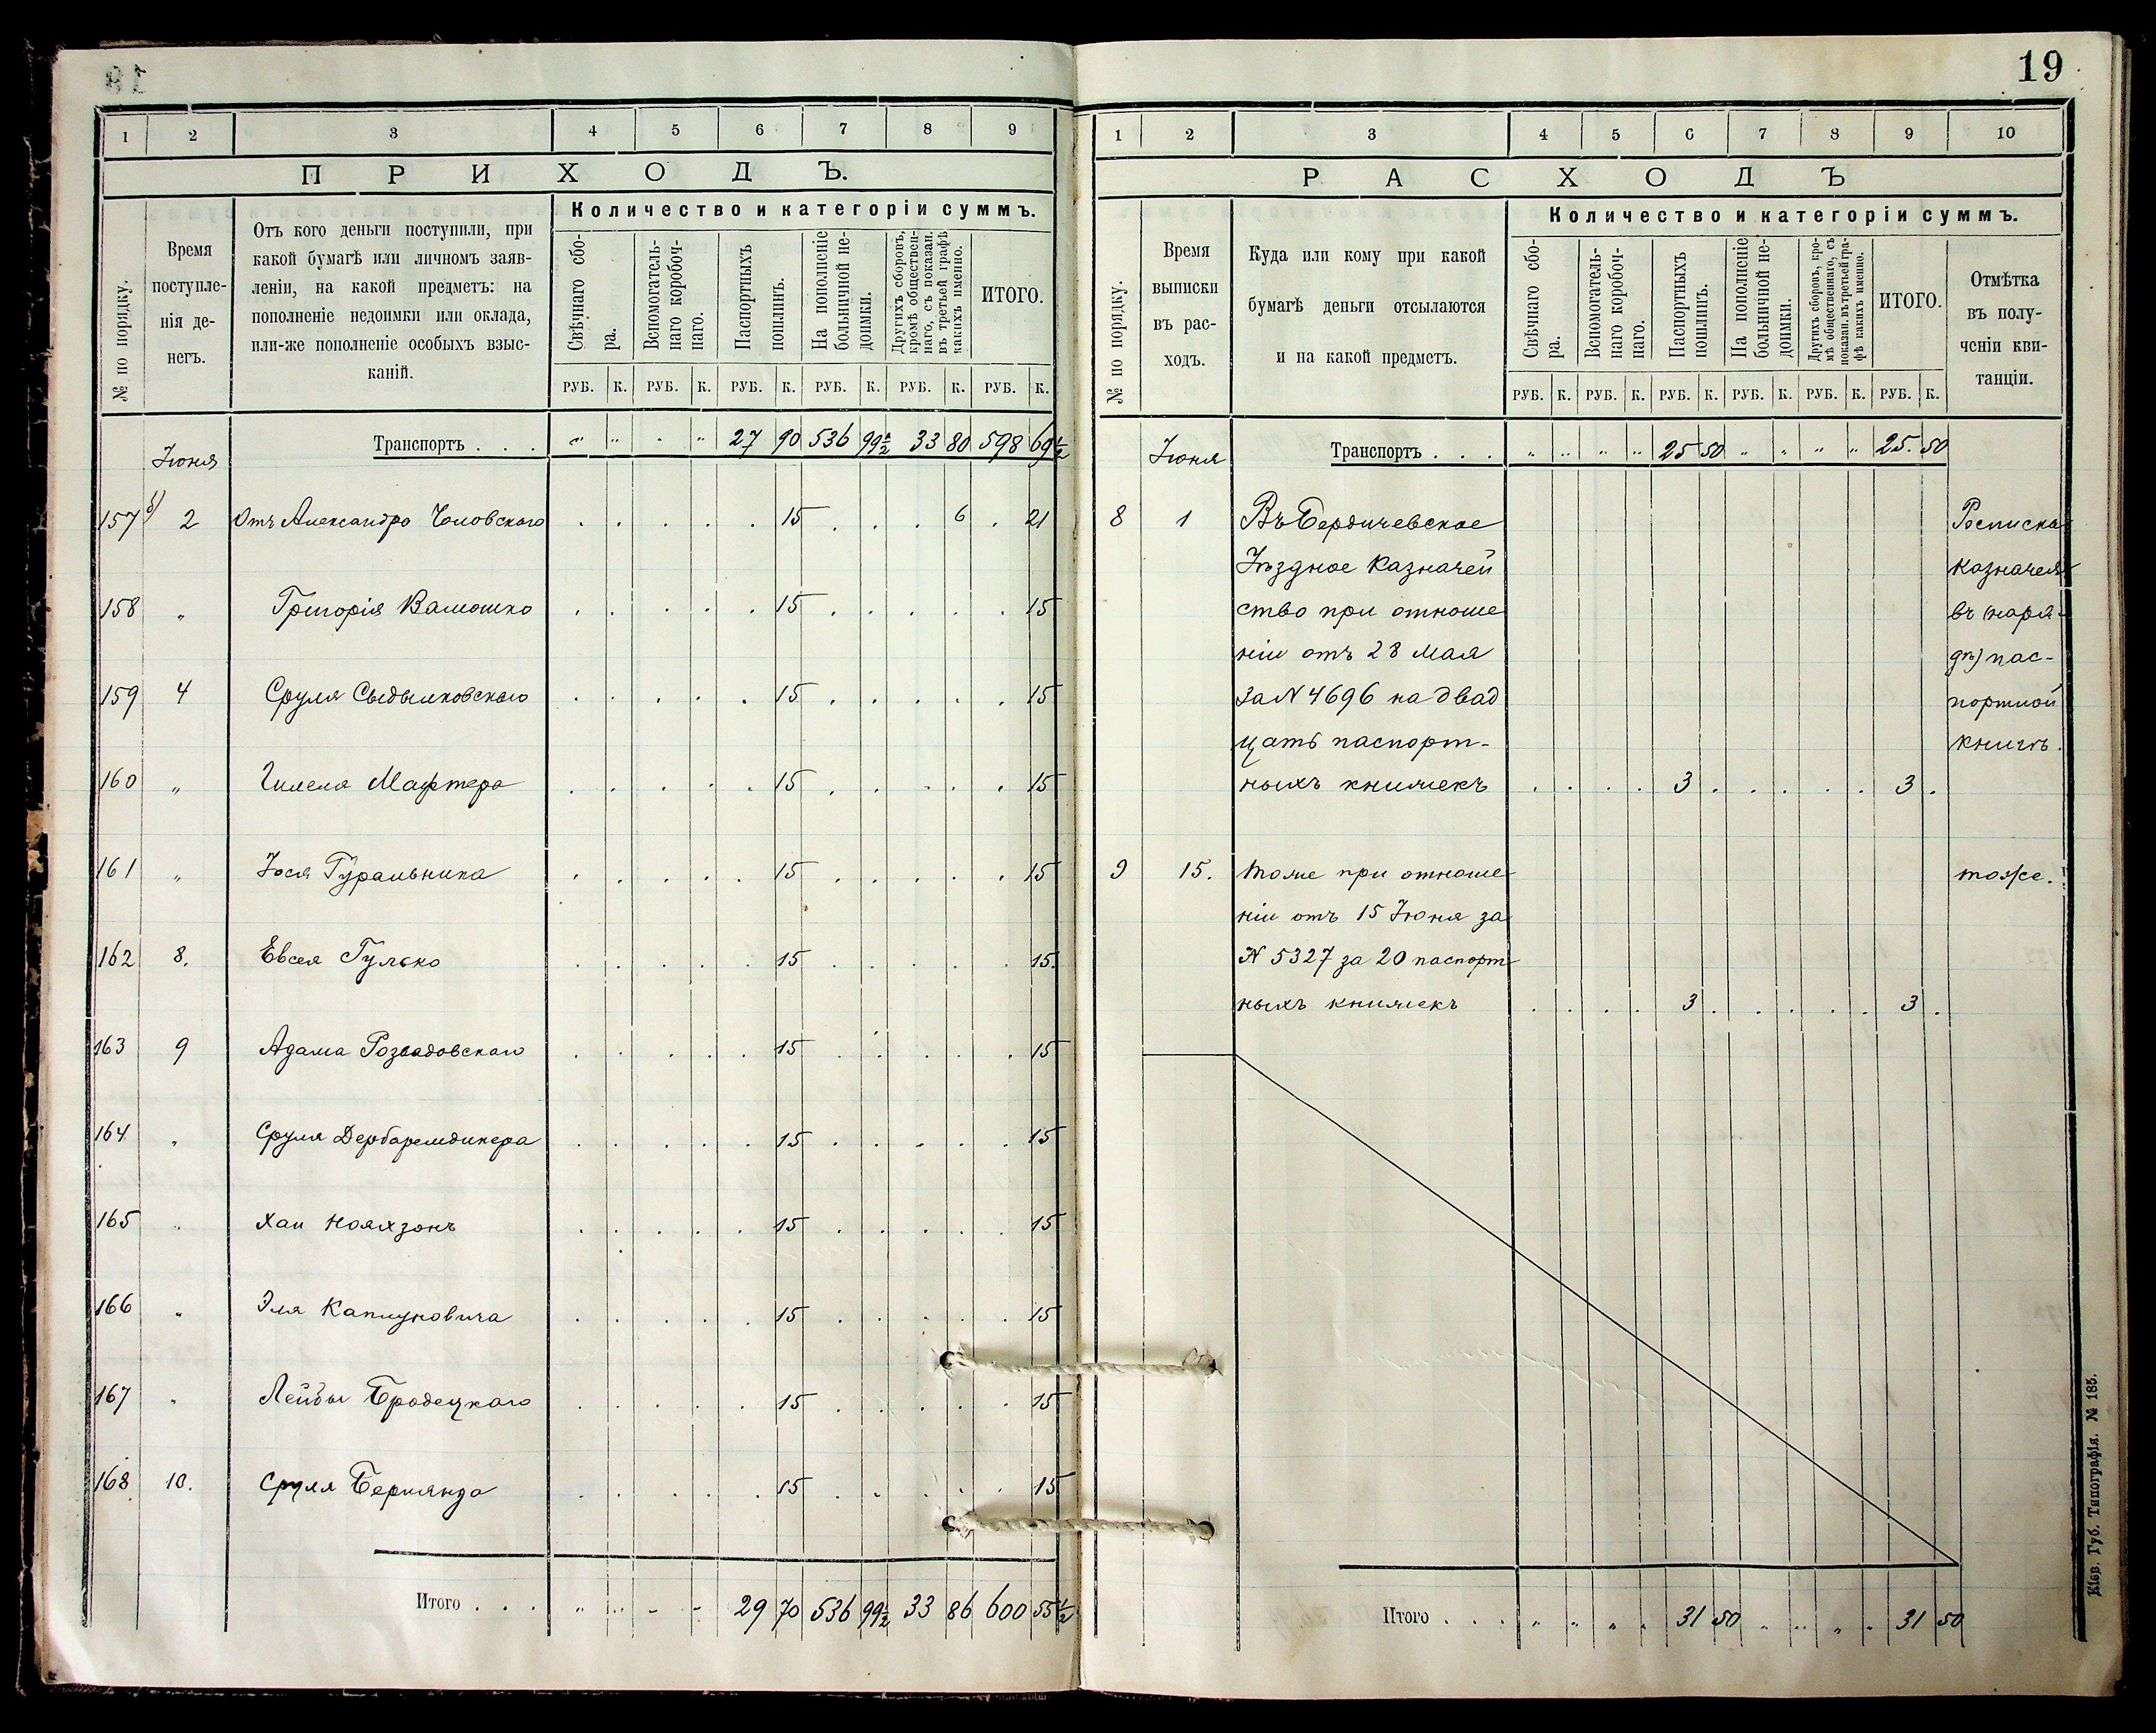 19
1 2 3 4 5 6 7 8 9
ПРИХОДЪ.
№ по порядку.
Время поступле-
нія де-
негъ.
Отъ кого деньги поступили, при
какой бумагѣ или личномъ заяв-
леніи, на какой предметъ: на
пополненіе недоимки или оклада,
или-же пополненіе особыхъ взыс-
каній.
Количество и категоріи суммъ.
Свѣчнаго сбо-
ра.
Вспомогатель-
наго коробоч-
наго.
Паспортныхъ
пошлинъ.
На пополненіе
больничной не-
доимки.
Другихъ сборовъ,
кромѣ обществен-
наго, съ показан.
въ третьей графѣ
какихъ именно.
ИТОГО.
РУБ. К. РУБ. К. РУБ. К. РУБ. К. РУБ. К. РУБ. К.
Іюня Транспортъ . . . " " " " 27 90 536 99½ 33 80 598 69½
157 2 Отъ Александра 15 6 21
158 " Григорія 15 15
159 4 Сруля 15 15
160 " Мафтера 15 15
161 " Іося Гуральника 15 15
162 8. Евсея Гулько 15 15.
163 9 Адама Розвадовскаго 15 15
164 " Сруля Дербаремдикера 15 15
165 " Хаи Нояхзонъ 15 15
166 " Эля Каплуновича 15 15
167 " Лейбы Бродецкаго 15 15
168 10. Сруля Берлянда 15 15
Итого . . . " " " " 29 70 536 99½ 33 86 600 55½
1 2 3 4 5 6 7 8 9 10
РАСХОДЪ
№ по порядку.
Время
выписки
въ рас-
ходъ.
Куда или кому при какой
бумагѣ деньги отсылаются
и на какой предметъ.
Количество и категоріи суммъ.
Свѣчнаго сбо-
ра.
Вспомогатель-
наго коробоч-
наго.
Паспортныхъ
пошлинъ.
На пополненіе
больничной не-
доимки.
Другихъ сборовъ, кро-
мѣ общественнаго, съ
показан. въ третьей гра-
фѣ какихъ именно.
ИТОГО.
Отмѣтка
въ полу-
ченіи кви-
танціи.
РУБ. К. РУБ. К. РУБ. К. РУБ. К. РУБ. К. РУБ. К.
Іюня Транспортъ . . . " " " " 25 50 " " " " 25. 50
8 1 Въ Бердичевское Росписка
Уѣздное Казначей казначея
ство при отноше въ (наря-
ніи отъ 28 Мая дѣ) пас-
За N 4696 на двад портной
цать паспорт- книгѣ.
ныхъ книжекъ 3 3
9 15. тоже при отноше тоже.
ніи отъ 15 Іюня за
N 5327 за 20 паспорт
ныхъ книжекъ 3 3
Итого . . . " " " " 31 50 " " " " 31 50
Кіев. Губ. Типографія. № 185.